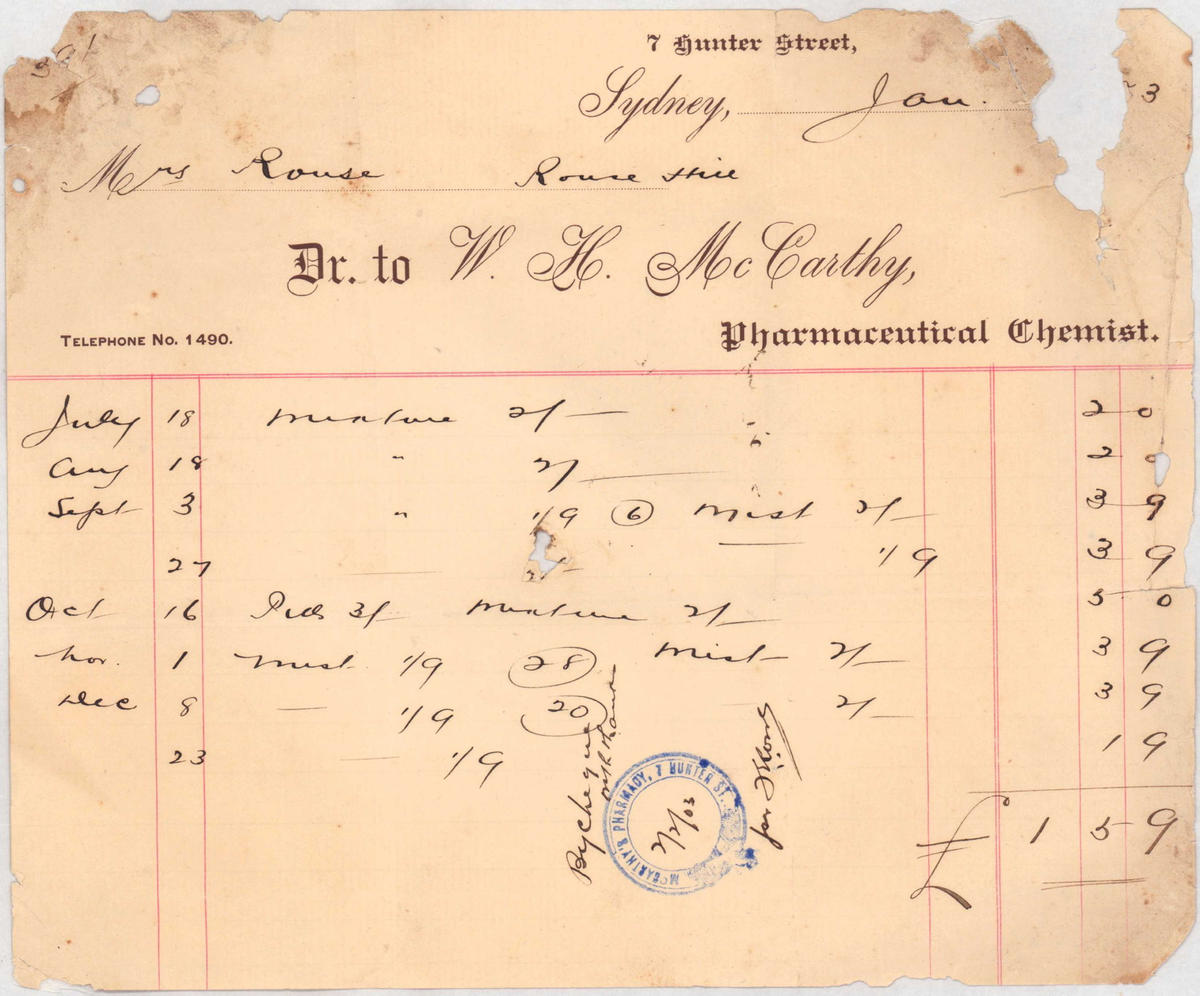 391
7 Hunter Street,
Sydney, Jan. 3
Mrs Rouse Rouse Hill
Dr. to W. H. McCarthy,
Telephone No. 1490.
Pharmaceutical Chemist.
July 18 Mixture 2/- 2 0
Aug 18 " 2/- 2 0
Sept 3 " 1/9 (6) Mist 2/- 3 9
27 — 2/- — 1/9 3 9
Oct 16 Pills 3/- Mixture 2/- 5 0
Nov. 1 Mist 1/9 (28) Mist 2/- 3 9
Dec 8 — 1/9 (20) 2/- 3 9
23 — 1/9 1 9
£ 1 5 9
By Cheque
with thanks
McCARTHY'S PHARMACY, 7 HUNTER ST.
2/2/03
for